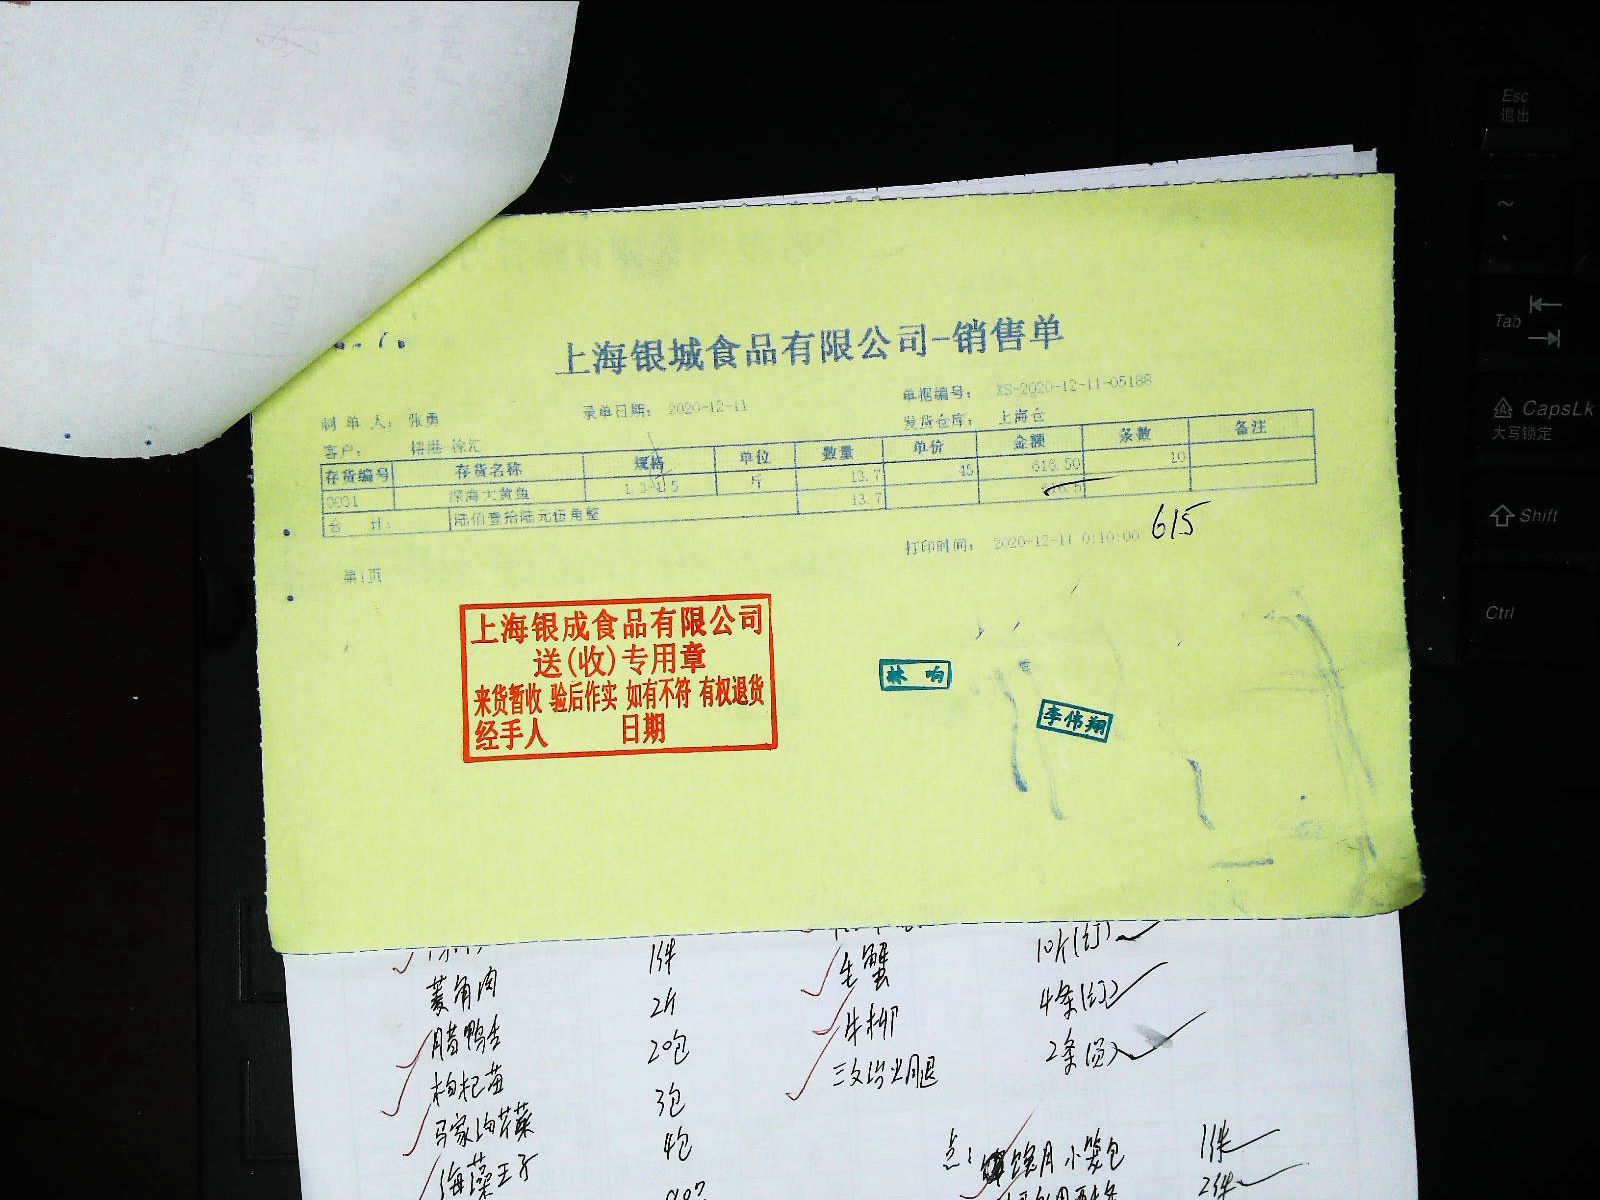 上海银城食品有限公司-销售单
制单人: 张勇 录单日期: 2020-12-11 单据编号: XS-2020-12-11-05188
客户: 徐汇 发货仓库: 上海仓
存货编号 存货名称 规格 单位 数量 单价 金额 条数 备注
0001 深海大黄鱼 斤 13.7 45 616.50 10
合计: 陆佰壹拾陆元伍角整 13.7
615
第1页 打印时间: 2020-12-11 0:10:00
上海银成食品有限公司
送(收)专用章
来货暂收 验后作实 如有不符 有权退货
经手人 日期
林响
李伟翔
1件
菱角肉 2斤
腊鸭舌 20包
枸杞苗 3包
马家沟芹菜 4包
海藻王子
生蟹 10斤
牛柳 4条
2条
点: 小笼包 1件
2件
Esc
退出
~
Tab
CapsLk
大写锁定
Shift
Ctrl